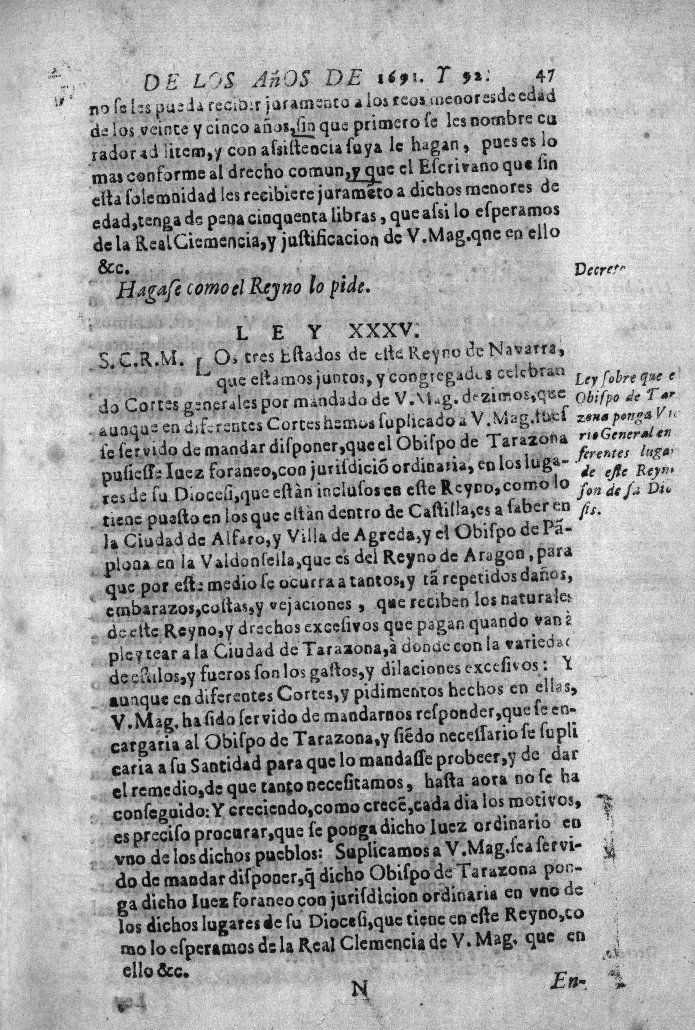 DE LOS AñOS DE 1691. Y 92. 47
no se les pueda recibir juramento a los reos menores de edad
de los veinte y cinco años, sin que primero se les nombre cu
rador ad litem, y con assistencia suya le hagan, pues es lo
mas conforme al drecho comun, y que el Escrivano que sin
esta solemnidad les recibiere juramẽto a dichos menores de
edad, tenga de pena cinquenta libras, que assi lo esperamos
de la Real Clemencia, y justificacion de V. Mag. que en ello
&c.
Decreto
Hagase como el Reyno lo pide.
LEY XXXV.
S.C.R.M. LOs tres Estados de este Reyno de Navarra,
que estamos juntos, y congregados celebran
do Cortes generales por mandado de V. Mag. dezimos, que
aunque en diferentes Cortes hemos suplicado a V. Mag. fues
se servido de mandar disponer, que el Obispo de Tarazona
pusiesse Iuez foraneo, con jurisdiciõ ordinaria, en los luga-
res de su Diocesi, que estàn inclusos en este Reyno, como lo
tiene puesto en los que estàn dentro de Castilla, es a saber en
la Ciudad de Alfaro, y Villa de Agreda, y el Obispo de Pã-
plona en la Valdonsella, que es del Reyno de Aragon, para
que por este medio se ocurra a tantos, y tã repetidos daños,
embarazos, costas, y vejaciones, que reciben los naturales
de este Reyno, y drechos excesivos que pagan quando van à
pleytear a la Ciudad de Tarazona, à donde con la variedad
de estilos, y fueros son los gastos, y dilaciones excesivos: Y
aunque en diferentes Cortes, y pidimentos hechos en ellas,
V. Mag. ha sido servido de mandarnos responder, que se en-
cargaria al Obispo de Tarazona, y siẽdo necessario se supli
caria a su Santidad para que lo mandasse probeer, y de dar
el remedio, de que tanto necesitamos, hasta aora no se ha
conseguido: Y creciendo, como crecẽ, cada dia los motivos,
es preciso procurar, que se ponga dicho Iuez ordinario en
vno de los dichos pueblos: Suplicamos a V. Mag. sea servi-
do de mandar disponer, q̃ dicho Obispo de Tarazona pon-
ga dicho Iuez foraneo con jurisdicion ordinaria en vno de
los dichos lugares de su Diocesi, que tiene en este Reyno, co
mo lo esperamos de la Real Clemencia de V. Mag. que en
ello &c.
Ley sobre que e
Obispo de Tar
zona ponga Vic
rio General en
ferentes lugar
de este Reyn
son de su Dio
sis.
N En-